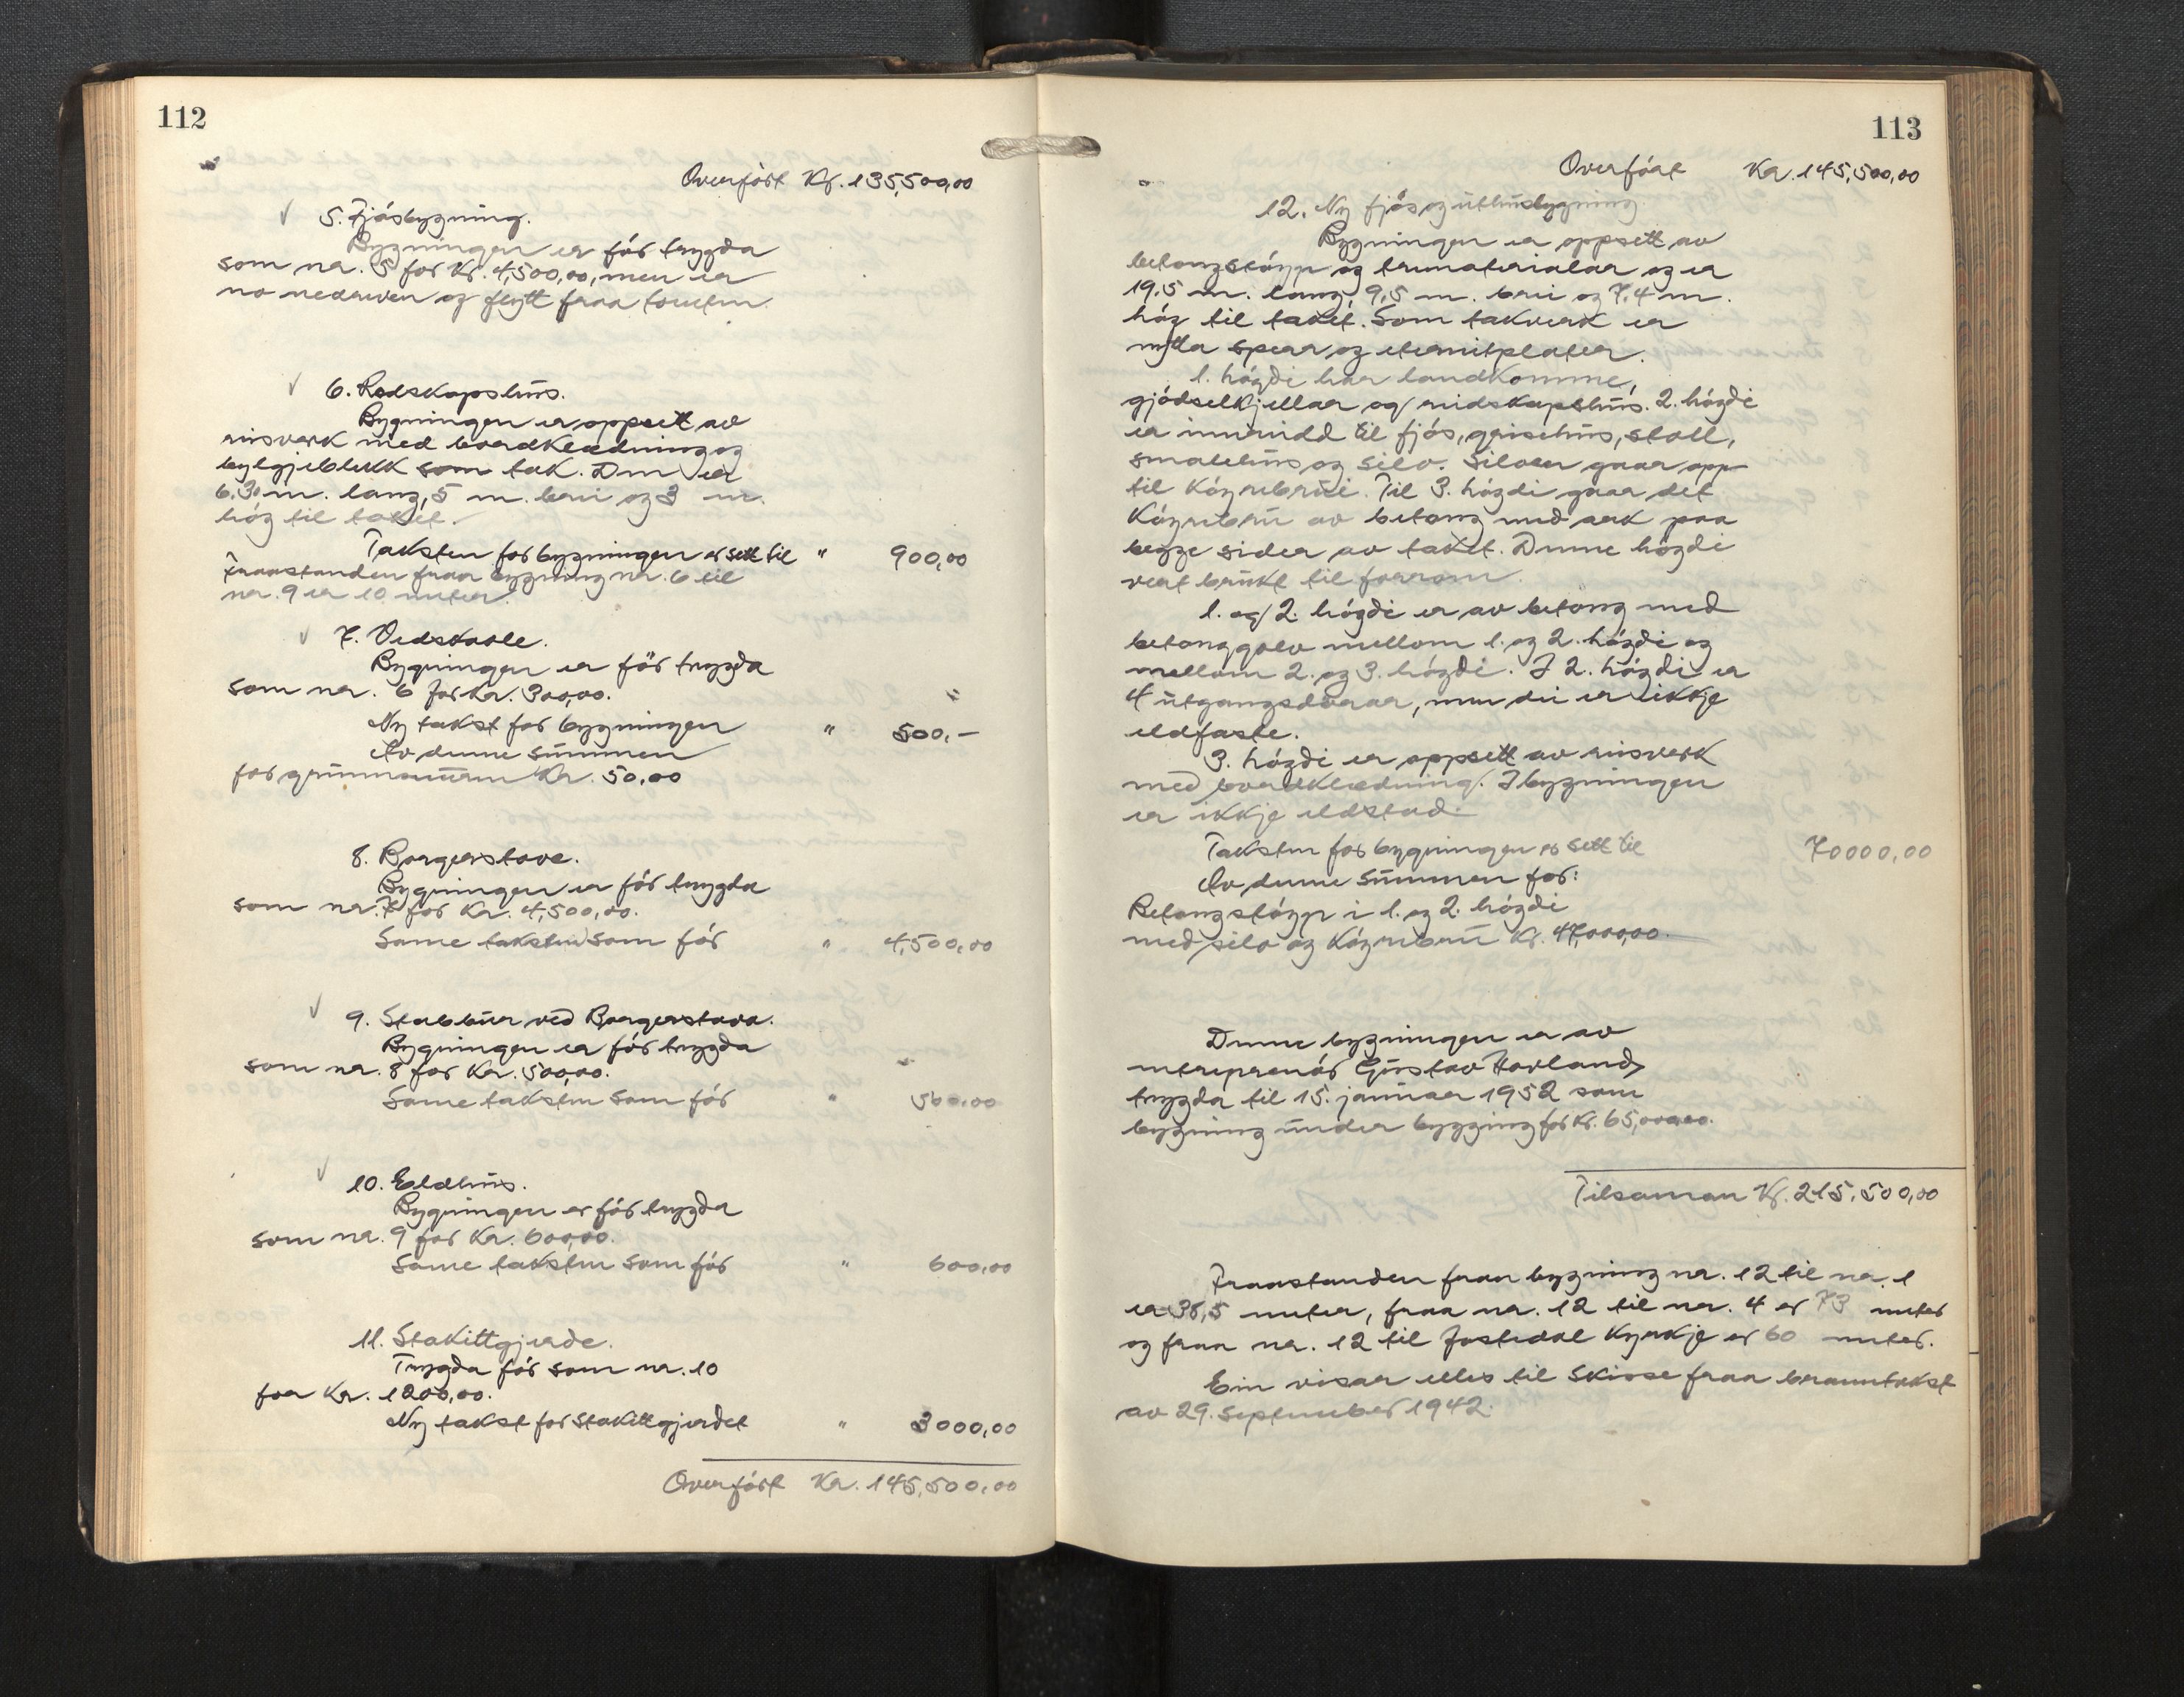 112
Overført Kr. 135,500,00
5. Fjøsbygning.
Bygningen er før trygda
som nr. 5 for Kr. 4,500,00, men er
no nedriven og flytt fraa tomten.
6. Redskapshus.
Bygningen er oppsett av
reisverk med bordklædning og
bylgjeblekk som tak. Den er
6.30 m. lang, 5 m. brei og 3 m.
høg til taket.
Taksten for bygningen er sett til " 900,00
Fraastanden fraa bygning nr. 6 til
nr. 9 er 10 meter.
7. Vedskaale.
Bygningen er før trygda
som nr. 6 for Kr. 300,00.
Ny takst for bygningen " 500.-
Av denne summen
for grunnmuren Kr. 50,00
8. Borgerstove.
Bygningen er før trygda
som nr. 7 for Kr. 4,500,00.
Same taksten som før " 4,500,00
9. Stabbur ved Borgerstova.
Bygningen er før trygda
som nr. 8 for Kr. 500,00.
Same taksten som før " 500,00
10. Eldhus.
Bygningen er før trygda
som nr. 9 for Kr. 600,00.
Same taksten som før " 600,00
11. Stakittgjerde.
Trygda før som nr. 10
for Kr. 1200,00.
Ny takst for stakittgjerdet " 3000,00
Overført Kr. 145,500,00
113
Overført Kr. 145,500,00
12. Ny fjøs og uthusbygning
Bygningen er oppsett av
betongstøyp og trematerialar og er
19.5 m. lang, 9,5 m. brei og 7.4 m.
høg til taket. Som takverk er
nytta sperr og eternitplater.
1. høgdi har landkomme,
gjødselkjellar og reidskapshus. 2. høgdi
er innreidd til fjøs, grisehus, stall,
smalehus og silo. Siloen gaar opp
til køyrebrui. Til 3. høgdi gaar det
køyrebru av betong med ark paa
begge sider av taket. Denne høgdi
vert brukt til forrom.
1. og 2. høgdi er av betong med
betonggolv mellom 1. og 2. høgdi og
mellom 2. og 3. høgdi. I 2. høgdi er
4 utgangsdører, men dei er ikkje
eldfaste.
3. høgdi er oppsett av reisverk
med bordklædning. I bygningen
er ikkje eldstad.
Taksten for bygningen er sett til 70000,00
Av denne summen for:
Betongstøyp i 1. og 2. høgdi
med silo og køyrebru Kr. 47,000,00.
Denne bygningen er av
entreprenør Gustav Hovland,
trygda til 15. januar 1952 som
bygning under bygging for Kr. 65,000,00.
Tilsaman Kr. 215,500,00
Fraastanden fraa bygning nr. 12 til nr. 1
er 38,5 meter, fraa nr. 12 til nr. 4 er 73 meter
og fraa nr. 12 til Jostedal Kyrkje er 60 meter.
Ein visar elles til skisse fraa branntakst
av 29. september 1942.